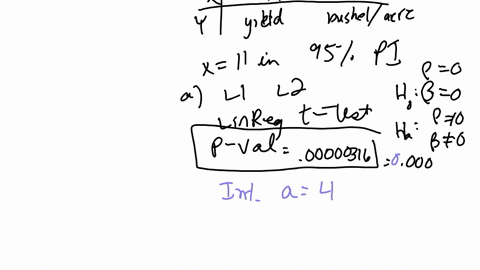 Y yield bushel/acre
x = 11 in 95% PI
a) L1 L2
ρ=0
H₀: β=0
LinReg t-Test
Ha: ρ≠0
β≠0
P-val = .00000316 = 0.000
Int. a = 4